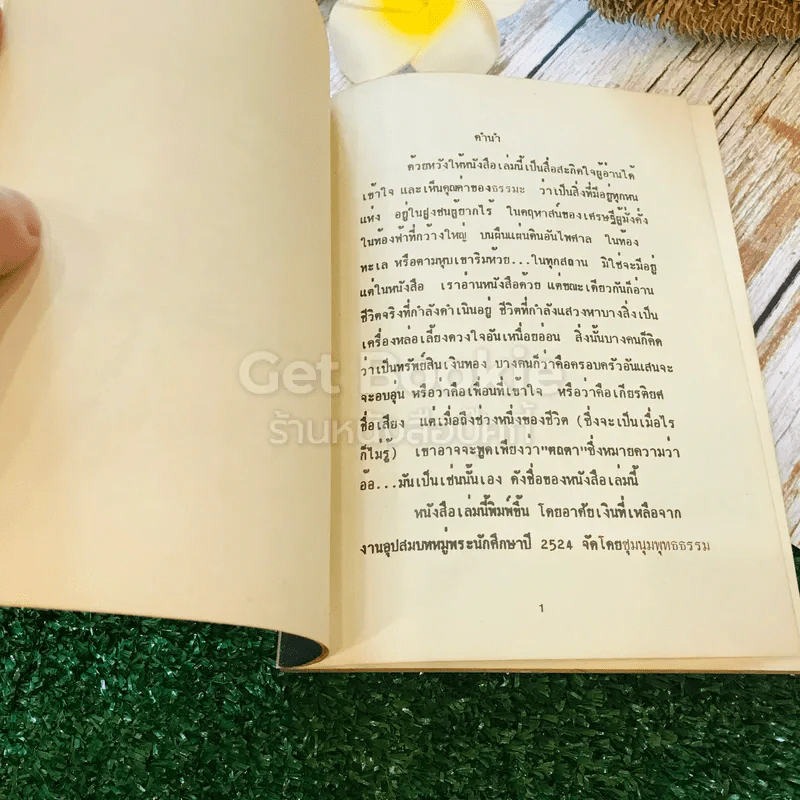 คำนำ
ด้วยหวังให้หนังสือเล่มนี้เป็นสื่อสะกิดใจผู้อ่านได้
เข้าใจ และเห็นคุณค่าของธรรมะ ว่าเป็นสิ่งที่มีอยู่ทุกหน
แห่ง อยู่ในฝูงชนผู้ยากไร้ ในคฤหาสน์ของเศรษฐีผู้มั่งคั่ง
ในท้องฟ้าที่กว้างใหญ่ บนผืนแผ่นดินอันไพศาล ในท้อง
ทะเล หรือตามหุบเขาริมห้วย...ในทุกสถาน มิใช่จะมีอยู่
แต่ในหนังสือ เราอ่านหนังสือด้วย แต่ขณะเดียวกันก็อ่าน
ชีวิตจริงที่กำลังดำเนินอยู่ ชีวิตที่กำลังแสวงหาบางสิ่งเป็น
เครื่องหล่อเลี้ยงดวงใจอันเหนื่อยอ่อน สิ่งนั้นบางคนก็คิด
ว่าเป็นทรัพย์สินเงินทอง บางคนก็ว่าคือครอบครัวอันแสนจะ
จะอบอุ่น หรือว่าคือเพื่อนที่เข้าใจ หรือว่าคือเกียรติยศ
ชื่อเสียง แต่เมื่อถึงช่วงหนึ่งของชีวิต (ซึ่งจะเป็นเมื่อไร
ก็ไม่รู้) เขาอาจจะพูดเพียงว่า"ตถตา"ซึ่งหมายความว่า
อ้อ...มันเป็นเช่นนั้นเอง ดังชื่อของหนังสือเล่มนี้
หนังสือเล่มนี้พิมพ์ขึ้น โดยอาศัยเงินที่เหลือจาก
งานอุปสมบทหมู่พระนักศึกษาปี 2524 จัดโดยชุมนุมพุทธธรรม
1
Get Bookie
ร้านหนังสือบุ๊คกี้